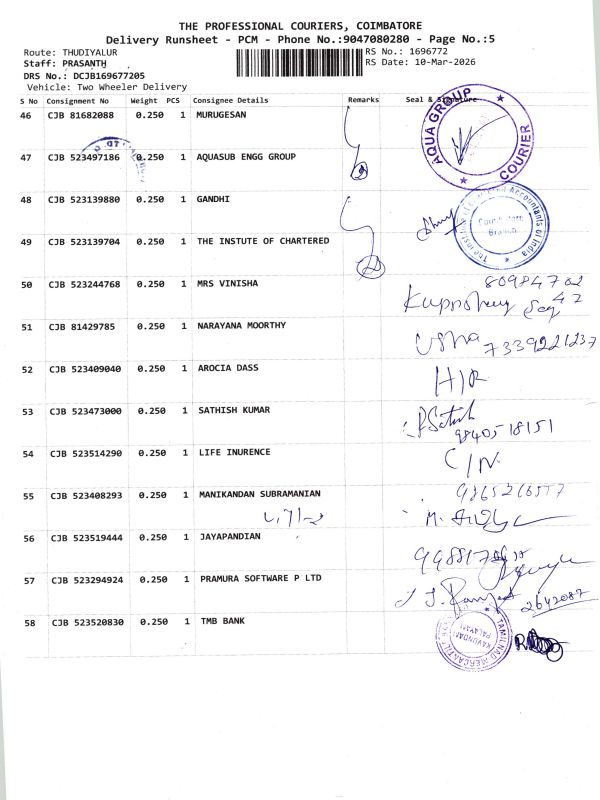 THE PROFESSIONAL COURIERS, COIMBATORE
Delivery Runsheet - PCM - Phone No.:9047080280 - Page No.:5
Route: THUDIYALUR
RS No.: 1696772
Staff: PRASANTH
RS Date: 10-Mar-2026
DRS No.: DCJB169677205
Vehicle: Two Wheeler Delivery
S No Consignment No Weight PCS Consignee Details Remarks Seal & Signature
46 CJB 81682088 0.250 1 MURUGESAN
AQUA GROUP COURIER
47 CJB 523497186 0.250 1 AQUASUB ENGG GROUP
48 CJB 523139880 0.250 1 GANDHI
The Institute of Chartered Accountants of India
Coimbatore
Branch
49 CJB 523139704 0.250 1 THE INSTUTE OF CHARTERED
50 CJB 523244768 0.250 1 MRS VINISHA
51 CJB 81429785 1 0.250 NARAYANA MOORTHY
Usha 7339221237
52 CJB 523409040 0.250 1 AROCIA DASS
53 CJB 523473000 0.250 1 SATHISH KUMAR
P Satish
9840518151
54 CJB 523514290 0.250 1 LIFE INURENCE
55 CJB 523408293 0.250 1 MANIKANDAN SUBRAMANIAN
56 CJB 523519444 0.250 1 JAYAPANDIAN
57 CJB 523294924 0.250 1 PRAMURA SOFTWARE P LTD
2642087
58 CJB 523520830 0.250 1 TMB BANK
TAMILNAD MERCANTILE
KAVUNDAM
PALAYAM